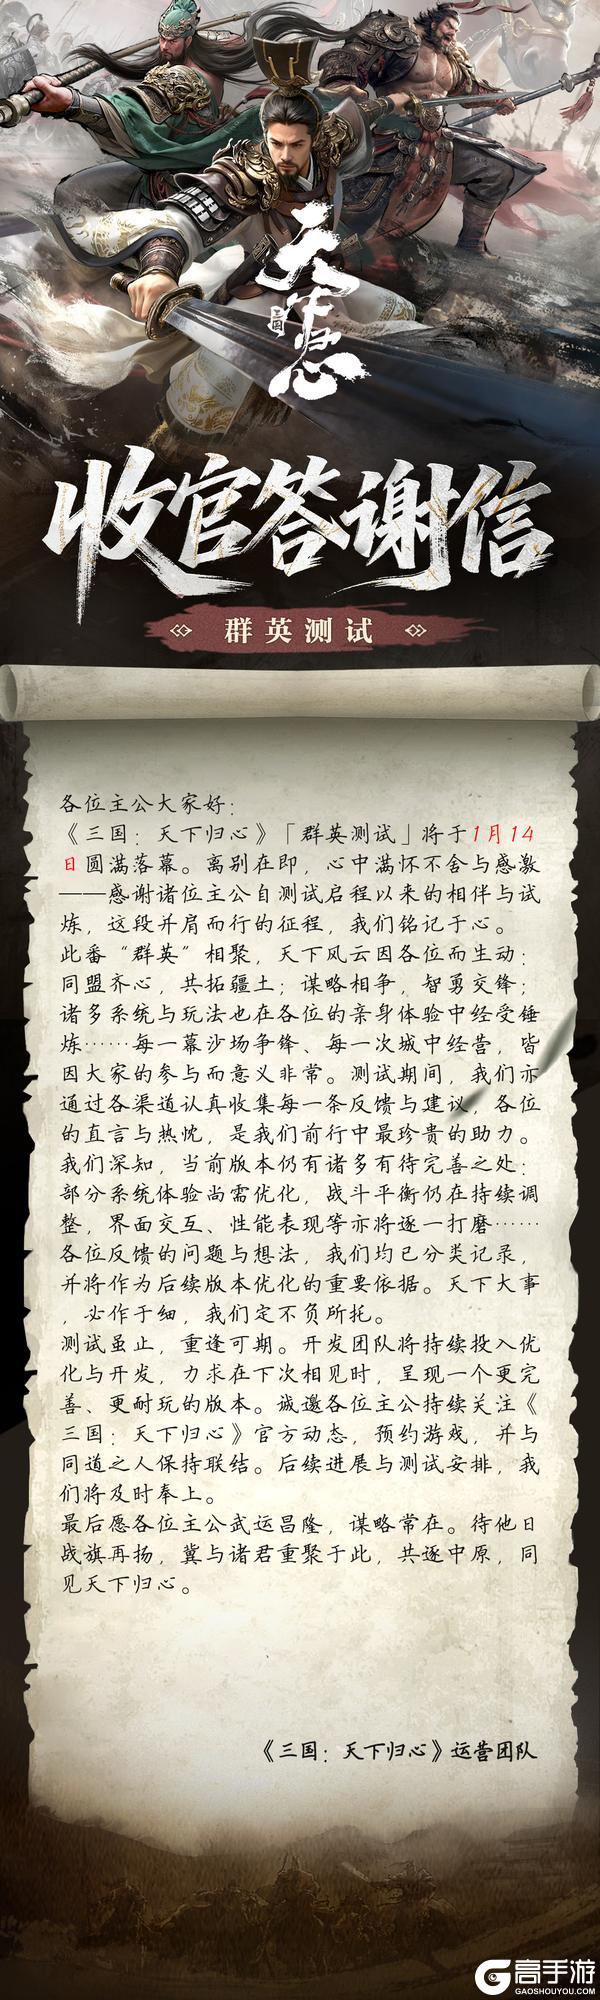 三国
天下归心
收官答谢信
群英测试
各位主公大家好：
《三国：天下归心》「群英测试」将于1月14
日圆满落幕。离别在即，心中满怀不舍与感激
——感谢诸位主公自测试启程以来的相伴与试
炼，这段并肩而行的征程，我们铭记于心。
此番“群英”相聚，天下风云因各位而生动：
同盟齐心，共拓疆土；谋略相争，智勇交锋；
诸多系统与玩法也在各位的亲身体验中经受锤
炼……每一幕沙场争锋、每一次城中经营，皆
因大家的参与而意义非常。测试期间，我们亦
通过各渠道认真收集每一条反馈与建议，各位
的直言与热忱，是我们前行中最珍贵的助力。
我们深知，当前版本仍有诸多有待完善之处：
部分系统体验尚需优化，战斗平衡仍在持续调
整，界面交互、性能表现等亦将逐一打磨……
各位反馈的问题与想法，我们均已分类记录，
并将作为后续版本优化的重要依据。天下大事
，必作于细，我们定不负所托。
测试虽止，重逢可期。开发团队将持续投入优
化与开发，力求在下次相见时，呈现一个更完
善、更耐玩的版本。诚邀各位主公持续关注《
三国：天下归心》官方动态，预约游戏，并与
同道之人保持联结。后续进展与测试安排，我
们将及时奉上。
最后愿各位主公武运昌隆，谋略常在。待他日
战旗再扬，冀与诸君重聚于此，共逐中原，同
见天下归心。
《三国：天下归心》运营团队
高手游
GAOSHOUYOU.COM